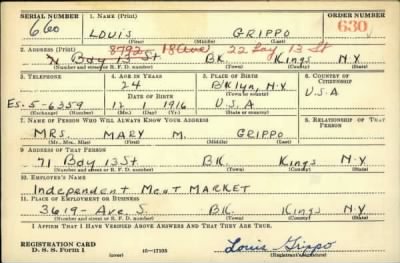 SERIAL NUMBER 1. NAME (Print) ORDER NUMBER
660 LOUIS GRIPPO 630
(First) (Middle) (Last)
2. ADDRESS (Print) 8792 18 Ave 22 Bay 13 St
71 Bay 13 St BK. Kings N.Y
(Number and street or R. F. D. number) (Town) (County) (State)
3. TELEPHONE 4. AGE IN YEARS 5. PLACE OF BIRTH 6. COUNTRY OF CITIZENSHIP
24 BKlyn, N.Y U.S.A
DATE OF BIRTH (Town or county)
Es. 5-6359 12 1 1916 U.S.A
(Exchange) (Number) (Mo.) (Day) (Yr.) (State or country)
7. NAME OF PERSON WHO WILL ALWAYS KNOW YOUR ADDRESS 8. RELATIONSHIP OF THAT PERSON
MRS. MARY M. GRIPPO
(Mr., Mrs., Miss) (First) (Middle) (Last)
9. ADDRESS OF THAT PERSON
71 Bay 13 St. BK. Kings N.Y
(Number and street or R. F. D. number) (Town) (County) (State)
10. EMPLOYER'S NAME
Independent Meat MARKET
11. PLACE OF EMPLOYMENT OR BUSINESS
3619- Ave. S. BK. Kings N.Y
(Number and street or R. F. D. number) (Town) (County) (State)
I AFFIRM THAT I HAVE VERIFIED ABOVE ANSWERS AND THAT THEY ARE TRUE.
REGISTRATION CARD
D. S. S. Form 1 (over) 16—17105 Louis Grippo